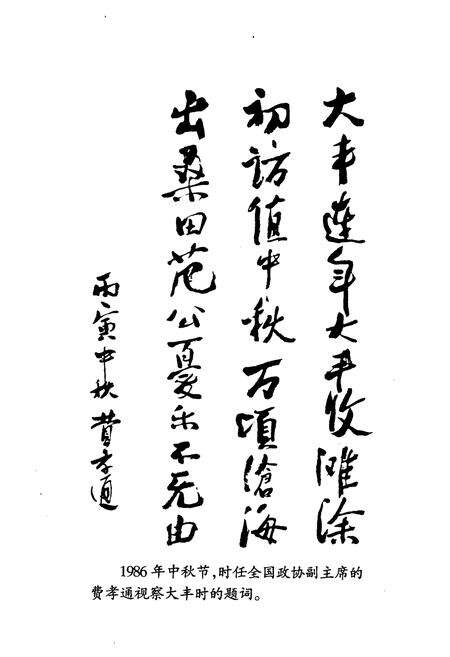 大丰連年大丰收滩涂
初訪值中秋万頃滄海
出桑田范公憂乐不无由
丙寅中秋 費孝通
1986年中秋节,时任全国政协副主席的
费孝通视察大丰时的题词。